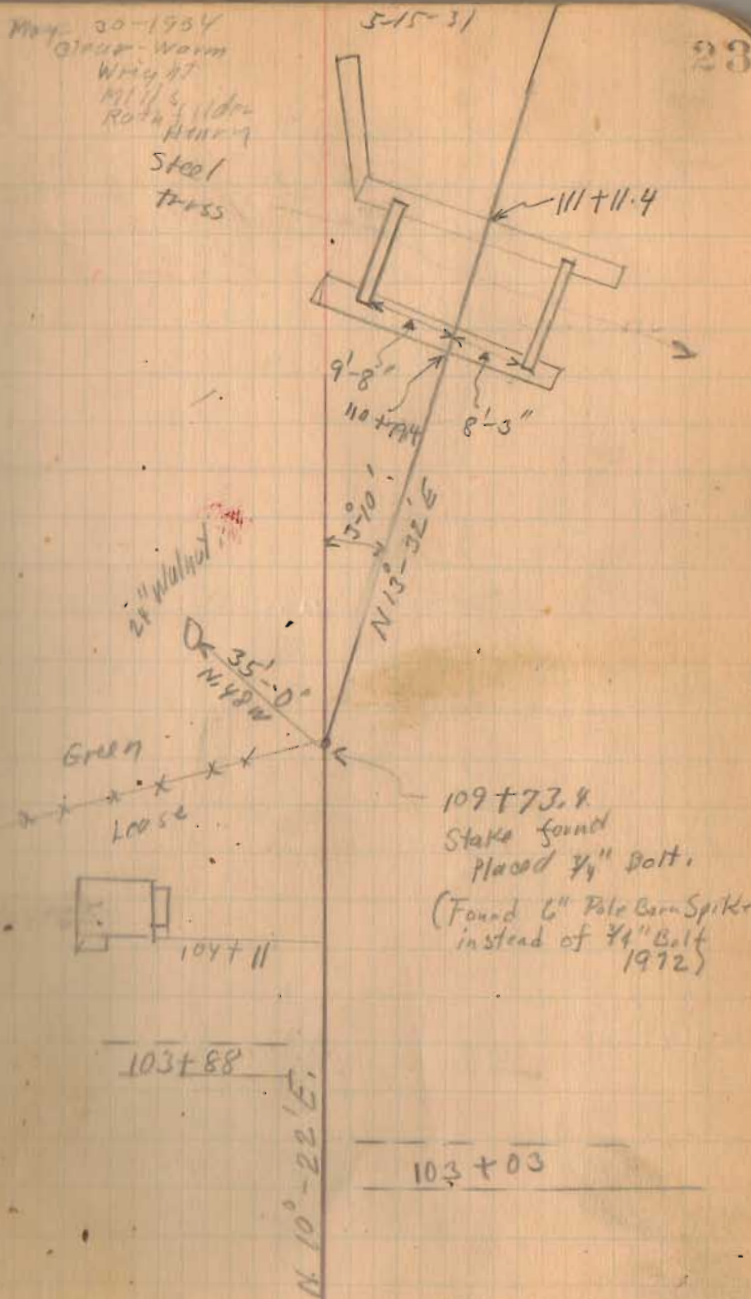 May 30-1934
Clear-Warm
Wright
Mills
Henry
Steel
truss
5-15-31
23
111+11.4
9'-8"
8'-3"
3°-10'
N 13°-32' E
24" Walnut
35'-0"
N.48W
Green
Lease
109+73.4
Stake found
Placed 3/4" Bolt.
(Found 6" Pole Barn Spike
instead of 3/4" Bolt
1972)
104+11
103+88
N. 10°-22' E.
103+03